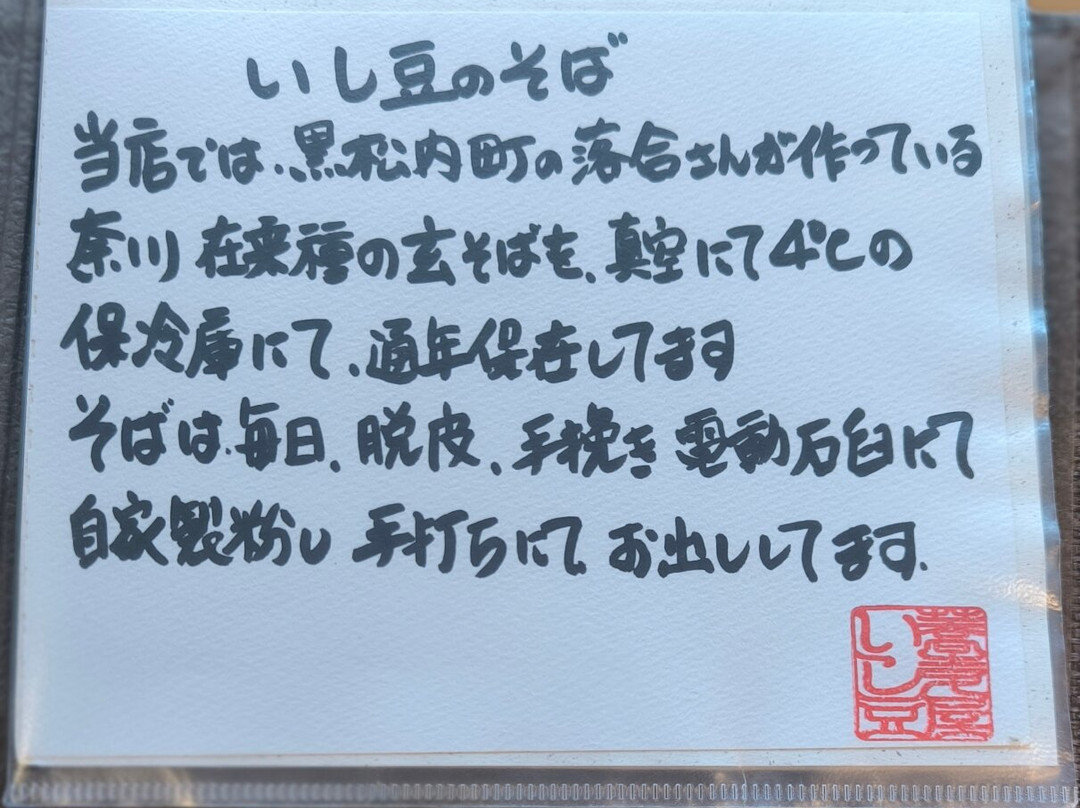 いし豆のそば
当店では、黒松内町の落合さんが作っている
奈川在来種の玄そばを、真空にて4℃の
保冷庫にて、通年保存してます
そばは、毎日、脱皮、手挽き電動石臼にて
自家製粉し手打ちにてお出ししてます。
蕎麦屋
いし豆